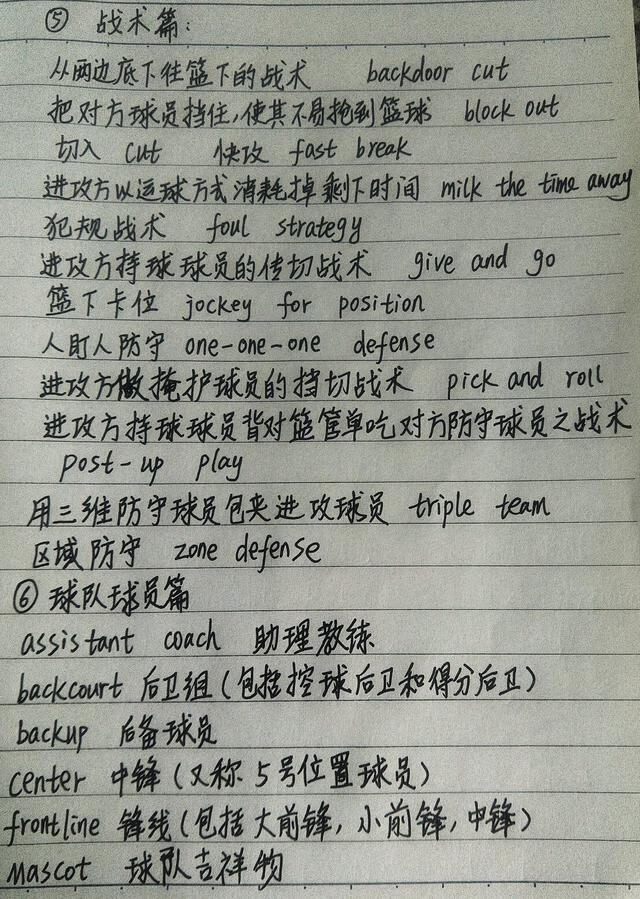 ⑤ 战术篇:
从两边底下往篮下的战术 backdoor cut
把对方球员挡住,使其不易抢到篮球 block out
切入 cut 快攻 fast break
进攻方以运球方式消耗掉剩下时间 milk the time away
犯规战术 foul strategy
进攻方持球球员的传切战术 give and go
篮下卡位 jockey for position
人盯人防守 one-one-one defense
进攻方做掩护球员的挡切战术 pick and roll
进攻方持球球员背对篮筐单吃对方防守球员之战术
post-up play
用三维防守球员包夹进攻球员 triple team
区域防守 zone defense
⑥ 球队球员篇
assistant coach 助理教练
backcourt 后卫组(包括控球后卫和得分后卫)
backup 后备球员
center 中锋(又称5号位置球员)
frontline 锋线(包括大前锋,小前锋,中锋)
mascot 球队吉祥物